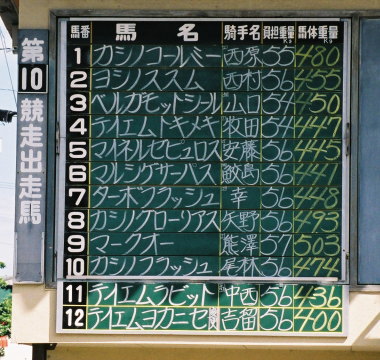 第10競走出走馬
馬番 馬名 騎手名 負担重量Kg 馬体重量Kg
1 カシノコールミー 西原 55 480
2 ヨシノススム 西村 56 455
3 ベルガモットシール 山口 54 450
4 テイエムトキメキ 牧田 54 447
5 マイネルゼビュロス 安藤 56 445
6 マルシゲサーパス 鮫島 56 447
7 ターボフラッシュ 幸 56 448
8 カシノグローリアス 矢野 56 493
9 マークオー 熊澤 57 503
10 カシノフラッシュ 尾林 56 474
11 テイエムラビット 中西 56 436
12 テイエムヨカニセ 吉留 56 400